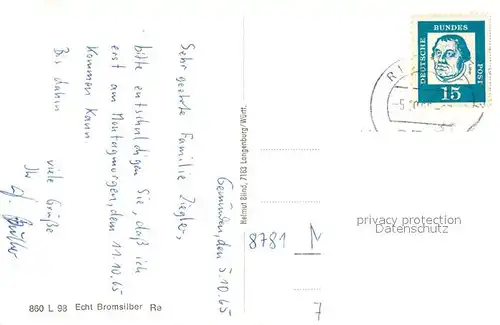 Gemünden, den 5.10.65
Sehr geehrte Familie Ziegler,
bitte entschuldigen Sie, daß ich
erst am Montagmorgen, dem 11.10.65
kommen kann.
Bis dahin
viele Grüße
Ihr
860 L 98 Echt Bromsilber Ra
Helmut Blind, 7183 Langenburg/Württ.
DEUTSCHE
BUNDES
POST
15
8781
privacy protection
Datenschutz